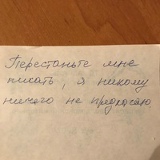 Перестаньте мне
пихать, я никому
ничего не предлагаю